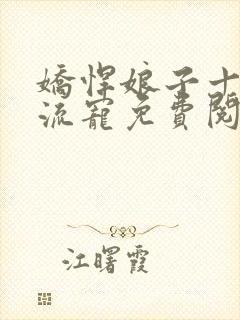 嬌悍娘子十
流寵免費閱
江曙霞